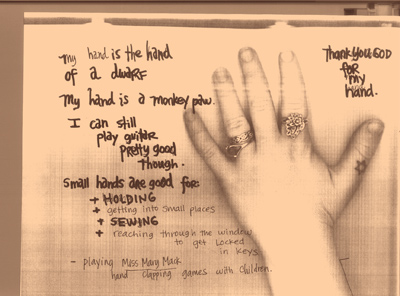 my hand is the hand
of a dwarf
my hand is a monkey paw.
I can still
play guitar
pretty good
though.
Small hands are good for:
+ HOLDING
+ getting into small places
+ SEWING
+ reaching through the window
to get locked
in keys
- playing Miss Mary Mack
hand clapping games with children.
Thank you GOD
for
my
hand.